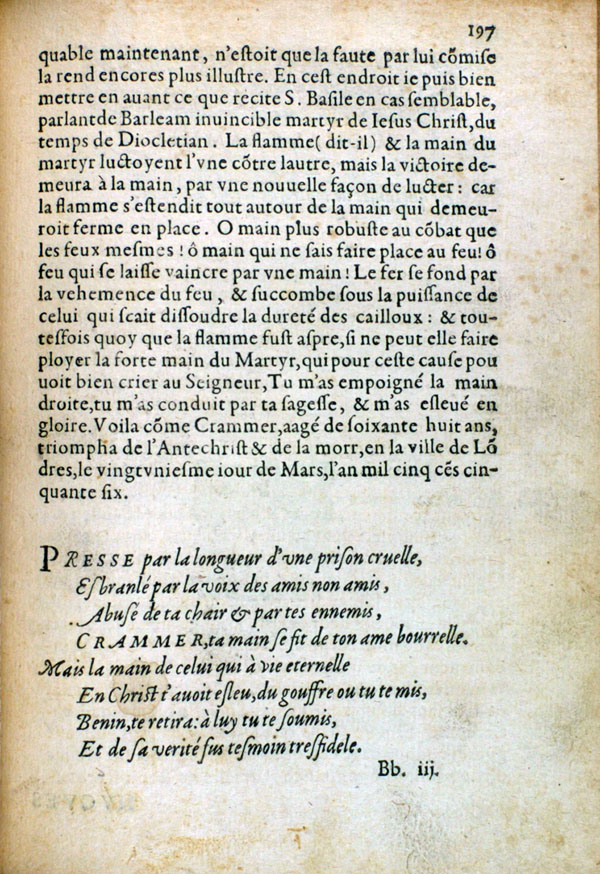 197
quable maintenant, n'eſtoit que la faute par lui cõmiſe
la rend encores plus illuſtre. En ceſt endroit ie puis bien
mettre en auant ce que recite S. Baſile en cas ſemblable,
parlant de Barleam inuincible martyr de Ieſus Chriſt, du
temps de Diocletian. La flamme (dit-il) & la main du
martyr luctoyent l'vne cõtre lautre, mais la victoire de-
meura à la main, par vne nouuelle façon de lucter: car
la flamme s'eſtendit tout autour de la main qui demeu-
roit ferme en place. O main plus robuſte au cõbat que
les feux meſmes! ô main qui ne ſais faire place au feu! ô
feu qui ſe laiſſe vaincre par vne main! Le fer ſe fond par
la vehemence du feu, & ſuccombe ſous la puiſſance de
celui qui ſcait diſſoudre la dureté des cailloux: & tou-
tesfois quoy que la flamme fuſt aſpre, ſi ne peut elle faire
ployer la forte main du Martyr, qui pour ceſte cauſe pou
uoit bien crier au Seigneur, Tu m'as empoigné la main
droite, tu m'as conduit par ta ſageſſe, & m'as eſleué en
gloire. Voila cõme Crammer, aagé de ſoixante huit ans,
triompha de l'Antechriſt & de la morr, en la ville de Lõ
dres, le vingtvnieſme iour de Mars, l'an mil cinq cẽs cin-
quante ſix.
PRESSE par la longueur d'vne priſon cruelle,
Esbranlé par la voix des amis non amis,
Abuſé de ta chair & par tes ennemis,
CRAMMER, ta main ſe fit de ton ame bourrelle.
Mais la main de celui qui à vie eternelle
En Chriſt t'auoit eſleu, du gouffre ou tu te mis,
Benin, te retira: à luy tu te ſoumis,
Et de ſa verité fus teſmoin treſfidele.
Bb. iij.